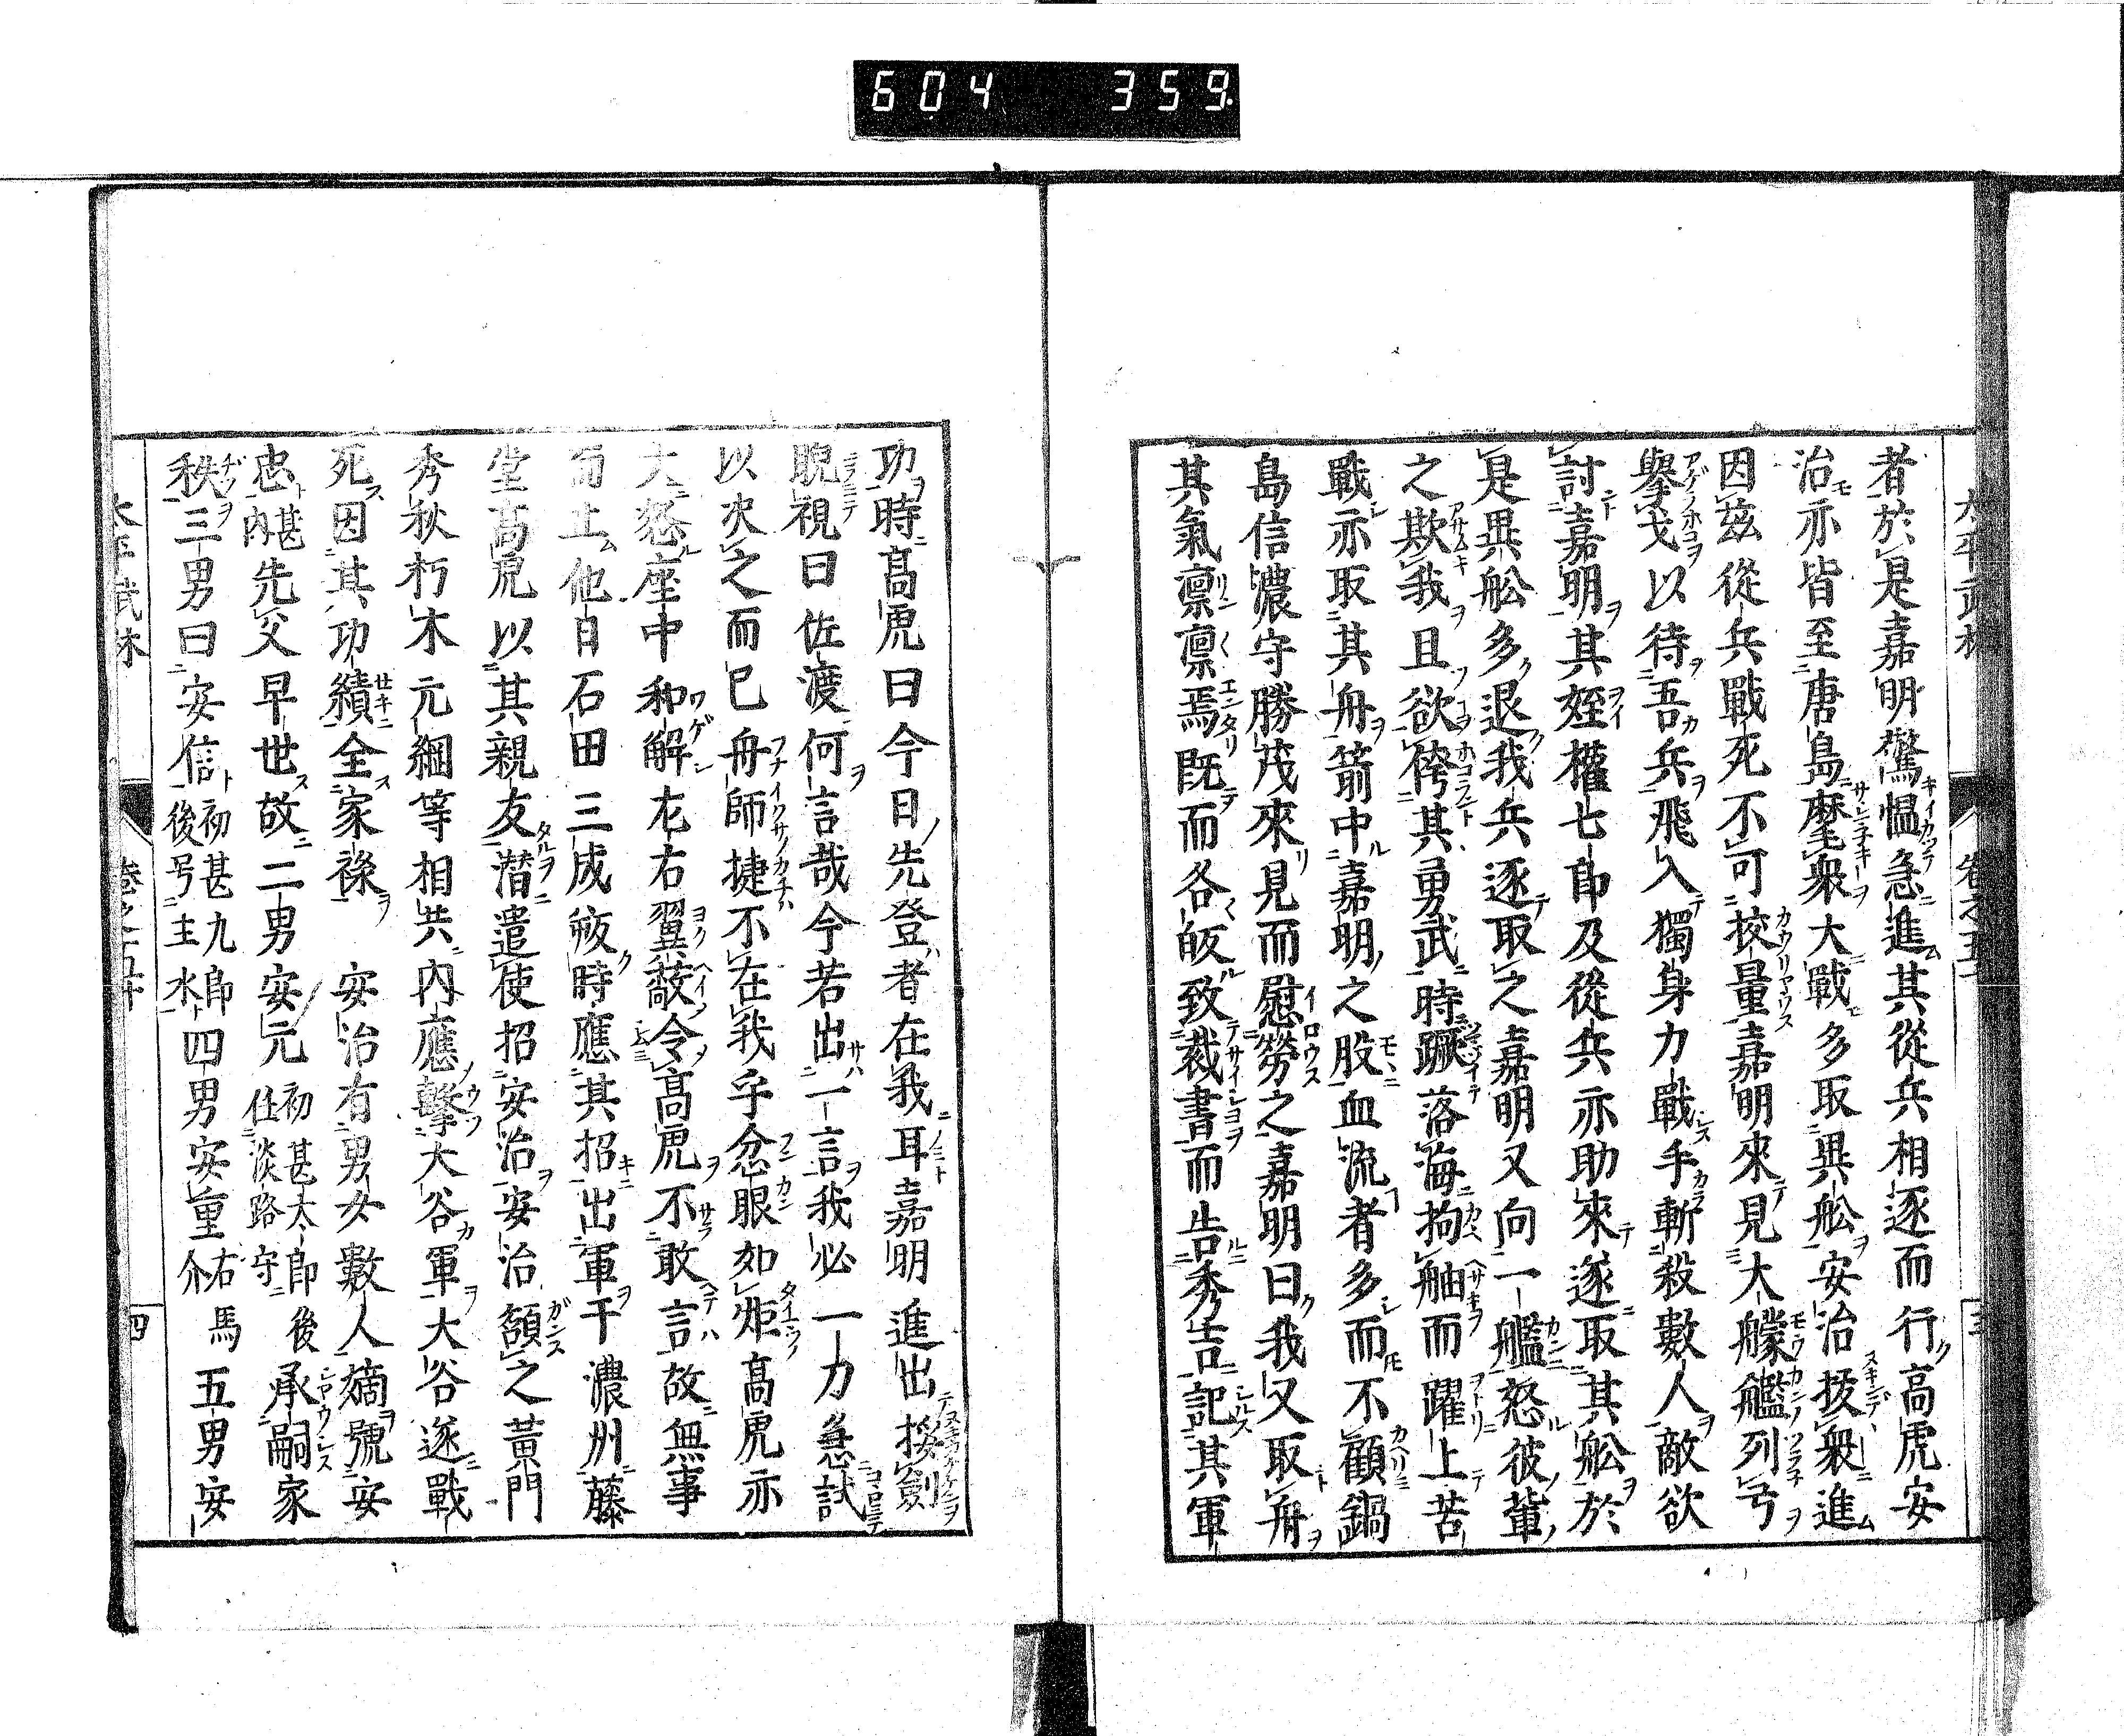 604 359
者於是嘉明驚慍急進其從兵相逐而行高虎安
治亦皆至唐島麾衆大戰多取異舩安治拔衆進
因茲從兵戰死不可挍量嘉明來見大艨艦列弓
擧戈以待吾兵飛入獨身力戰手斬殺數人敵欲
討嘉明其姪權七郎及從兵亦助來遂取其舩於
是異舩多退我兵逐取之嘉明又向一艦怒彼輩
之欺我且欲誇其勇武時蹶落海拘舳而躍上苦
戰亦取其舟箭中嘉明之股血流者多而不顧鍋
島信濃守勝茂來見而慰勞之嘉明曰我又取舟
其氣凛凛焉既而各皈致裁書而告秀吉記其軍
功時髙虎曰今日先登者在我耳嘉明進出按劍
睨視曰佐渡何言哉今若出一言我必一力急試
以次之而已舟師捷不在我乎忿眼如炬髙虎亦
大怒座中和解左右翼蔽令髙虎不敢言故無事
而止他日石田三成叛時應其招出軍于濃州藤
堂髙虎以其親友潛遣使招安治安治頷之黃門
秀秋朽木元綱等相共內應擊大谷軍大谷遂戰
死因其功績全家祿 安治有男女數人嫡號安
忠甚內先父早世故二男安元初甚太郎後任淡路守承嗣家
秩三男曰安信初甚九郎後号主水四男安重右馬介五男安
太平武林
卷之五
四